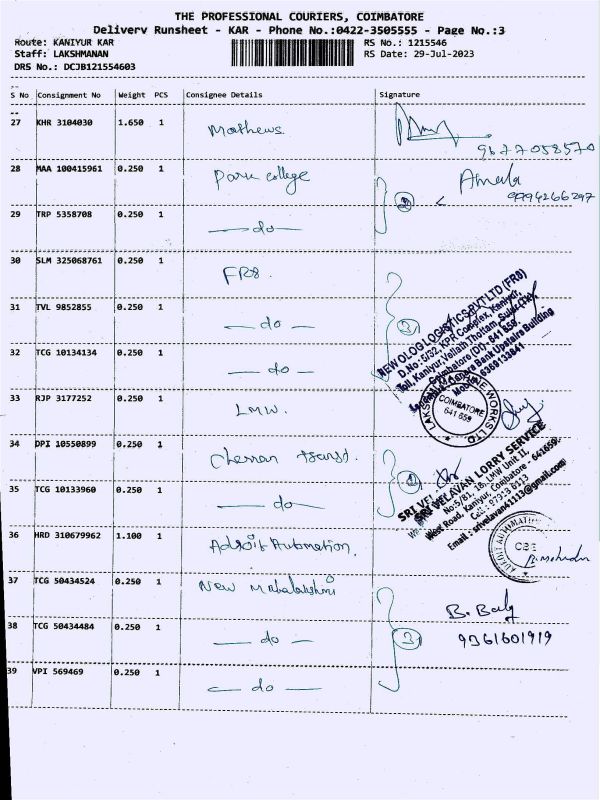 THE PROFESSIONAL COURIERS, COIMBATORE
Delivery Runsheet - KAR - Phone No.:0422-3505555 - Page No.:3
Route: KANIYUR KAR RS No.: 1215546
Staff: LAKSHMANAN RS Date: 29-Jul-2023
DRS No.: DCJB121554603
S No Consignment No Weight PCS Consignee Details Signature
27 KHR 3104030 1.650 1 Mathews
9677058570
28 MAA 100415961 0.250 1 Park college
9994266297
29 TRP 5358708 0.250 1 — do —
30 SLM 325068761 0.250 1 FR8.
NEW OLOG LOGISTICS PVT LTD (FR8)
D.No:5/32, KPR Complex, Kaniyur,
Toll, Kaniyur, Vellaih Thottam, Sulur (Tk),
Coimbatore (Dt)- 641 659
Canara Bank Upstairs Building
31 TVL 9852855 0.250 1 — do — 3
32 TCG 10134134 0.250 1 — do —
33 RJP 3177252 0.250 1 LMW.
COIMBATORE
641 659
34 DPI 10550899 0.250 1
SRI VELAVAN LORRY SERVICE
No:5/81, 18, LMW Unit II,
West Road, Kaniyur, Coimbatore - 641659.
Email : srivelavan41113@gmail.com
35 TCG 10133960 0.250 1 — do —
36 HRD 310679962 1.100 1 Adroit Automation.
CBE
37 TCG 50434524 0.250 1 New Mahalakshmi
38 TCG 50434484 0.250 1 — do — 3
9361601919
39 VPI 569469 0.250 1 — do —